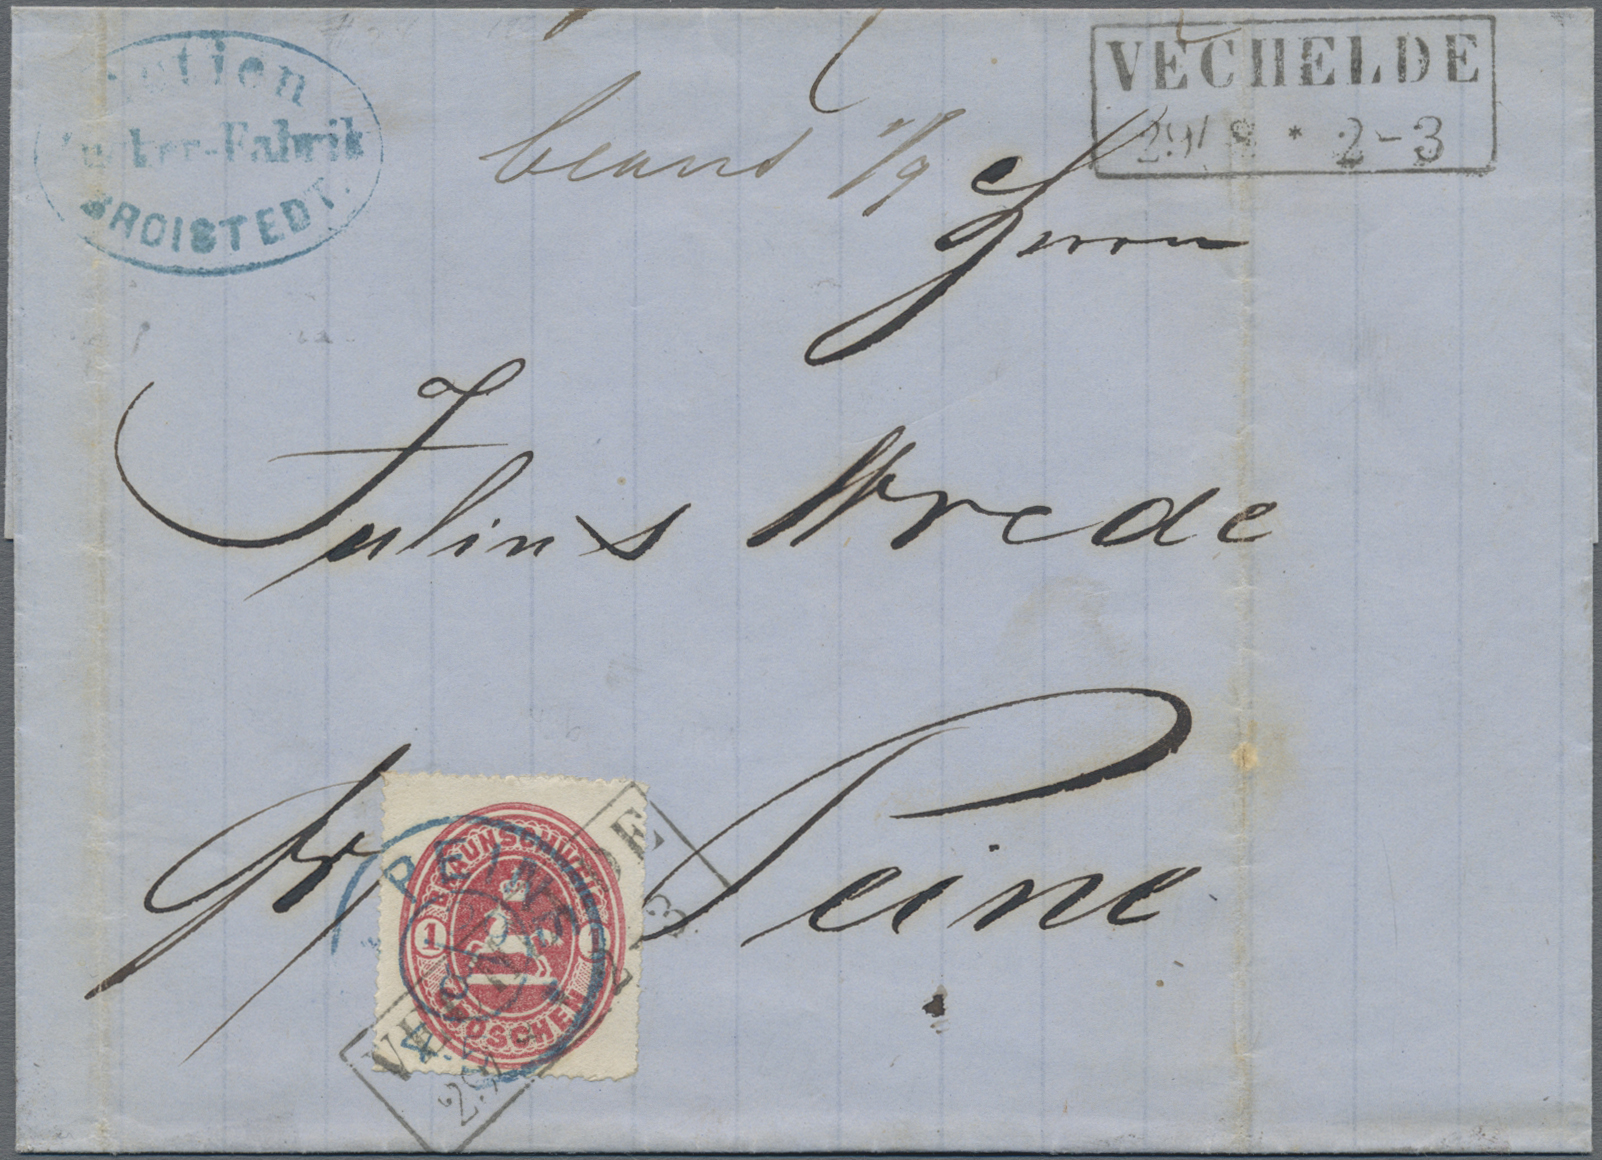 Actien
Zucker-Fabrik
BROISTEDT.
VECHELDE
29/8 * 2-3
1/9
Herrn
Julius Wrede
Peine
BRAUNSCHWEIG
1
GROSCHEN
PEINE
VECHELDE
29/8 * 2-3